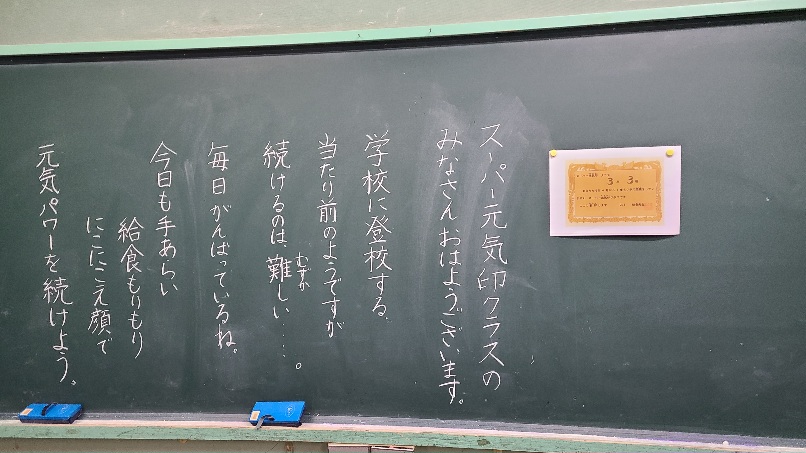 スーパー元気印クラスの
みなさんおはようございます。
学校に登校する
当たり前のようですが
続けるのは、難しい……。
むずか
毎日がんばっているね。
今日も手あらい
給食もりもり
にこにこえ顔で
元気パワーを続けよう。